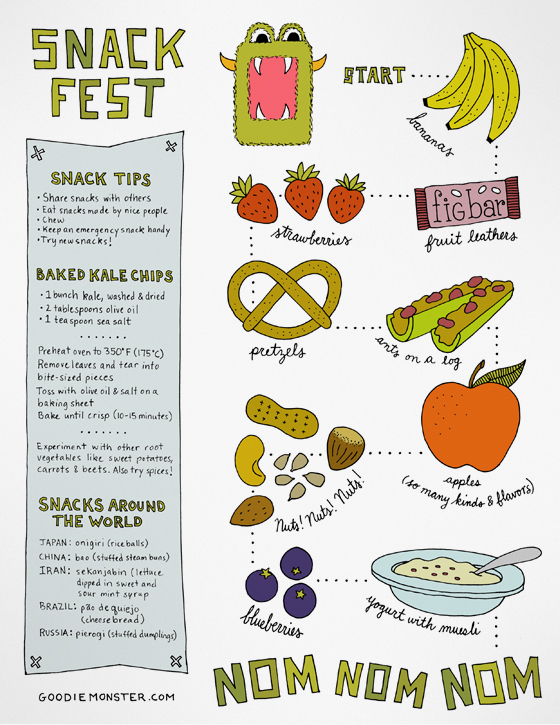 SNACK
FEST
SNACK TIPS
• Share snacks with others
• Eat snacks made by nice people
• Chew
• Keep an emergency snack handy
• Try new snacks!
BAKED KALE CHIPS
• 1 bunch kale, washed & dried
• 2 tablespoons olive oil
• 1 teaspoon sea salt
Preheat oven to 350°F (175°C)
Remove leaves and tear into
bite-sized pieces
Toss with olive oil & salt on a
baking sheet
Bake until crisp (10-15 minutes)
Experiment with other root
vegetables like sweet potatoes,
carrots & beets. Also try spices!
SNACKS AROUND
THE WORLD
JAPAN: onigiri (rice balls)
CHINA: bao (stuffed steam buns)
IRAN: sekanjabin (lettuce
dipped in sweet and
sour mint syrup
BRAZIL: pão de queijo
(cheese bread)
RUSSIA: pierogi (stuffed dumplings)
GOODIEMONSTER.COM
START
bananas
fig bar
fruit leathers
strawberries
pretzels
ants on a log
apples
(so many kinds & flavors)
Nuts! Nuts! Nuts!
blueberries
yogurt with muesli
NOM NOM NOM